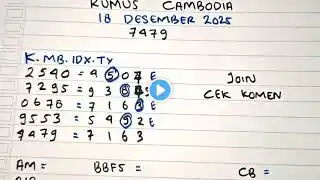 RUMUS CAMBODIA
18 DESEMBER 2025
7479
K.MB.IDX.TY
2540 = 9507 E
7295 = 93843
0678 = 7168 E
9553 = 5492 E
7479 = 7163
JOIN
CEK KOMEN
AM =
BBFS =
CB =